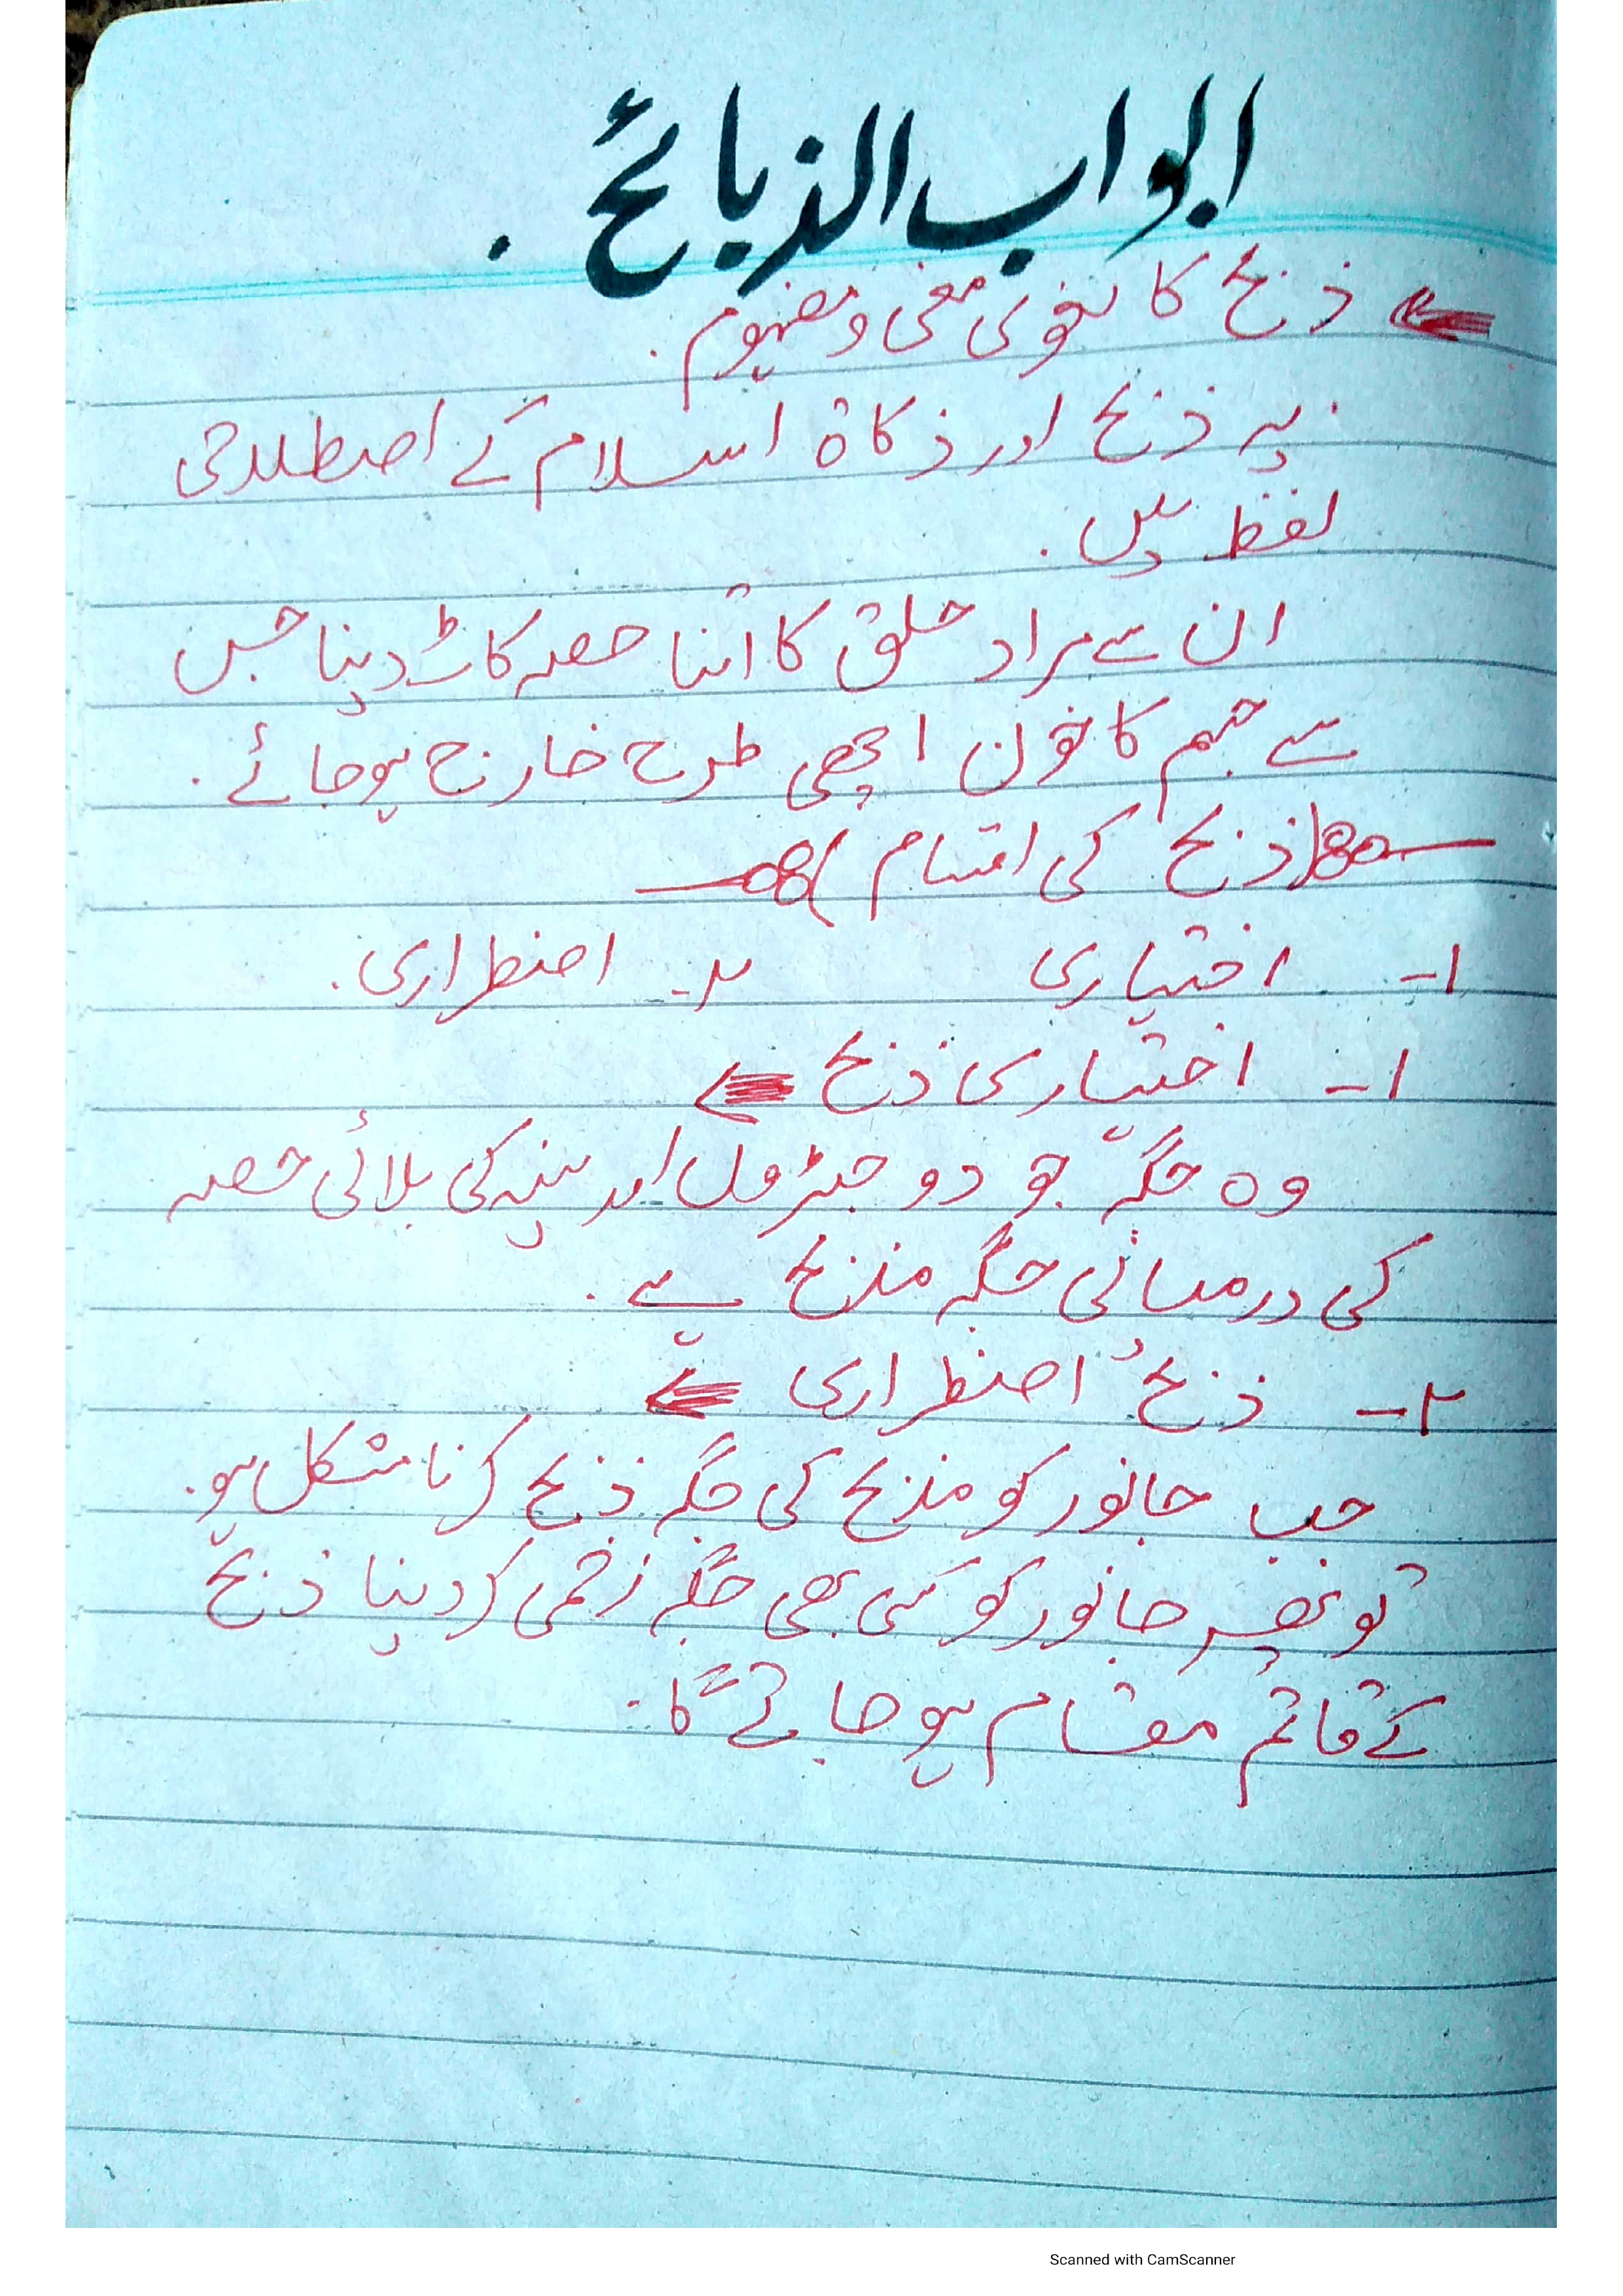 ابواب الذبائح .
ذبح کا لغوی معنی و مفہوم .
یہ ذبح اور ذکاۃ اسلام کے اصطلاحی
لفظ ہیں .
ان سے مراد حلق کا اتنا حصہ کاٹ دینا جس
سے جسم کا خون اچھی طرح خارج ہوجائے .
(ذبح کی اقسام)
۱- اختیاری ۲- اضطراری .
۱- اختیاری ذبح
وہ جگہ جو دو جبڑوں اور سینہ کی بلائی حصہ
کی درمیانی جگہ مذبح ہے .
۲- ذبحُ اضطراری
جب جانور کو مذبح کی جگہ ذبح کرنا مشکل ہو .
تو پھر جانور کو کسی بھی جگہ زخمی کردینا ذبح
کے قائم مقام ہو جائے گا .
Scanned with CamScanner